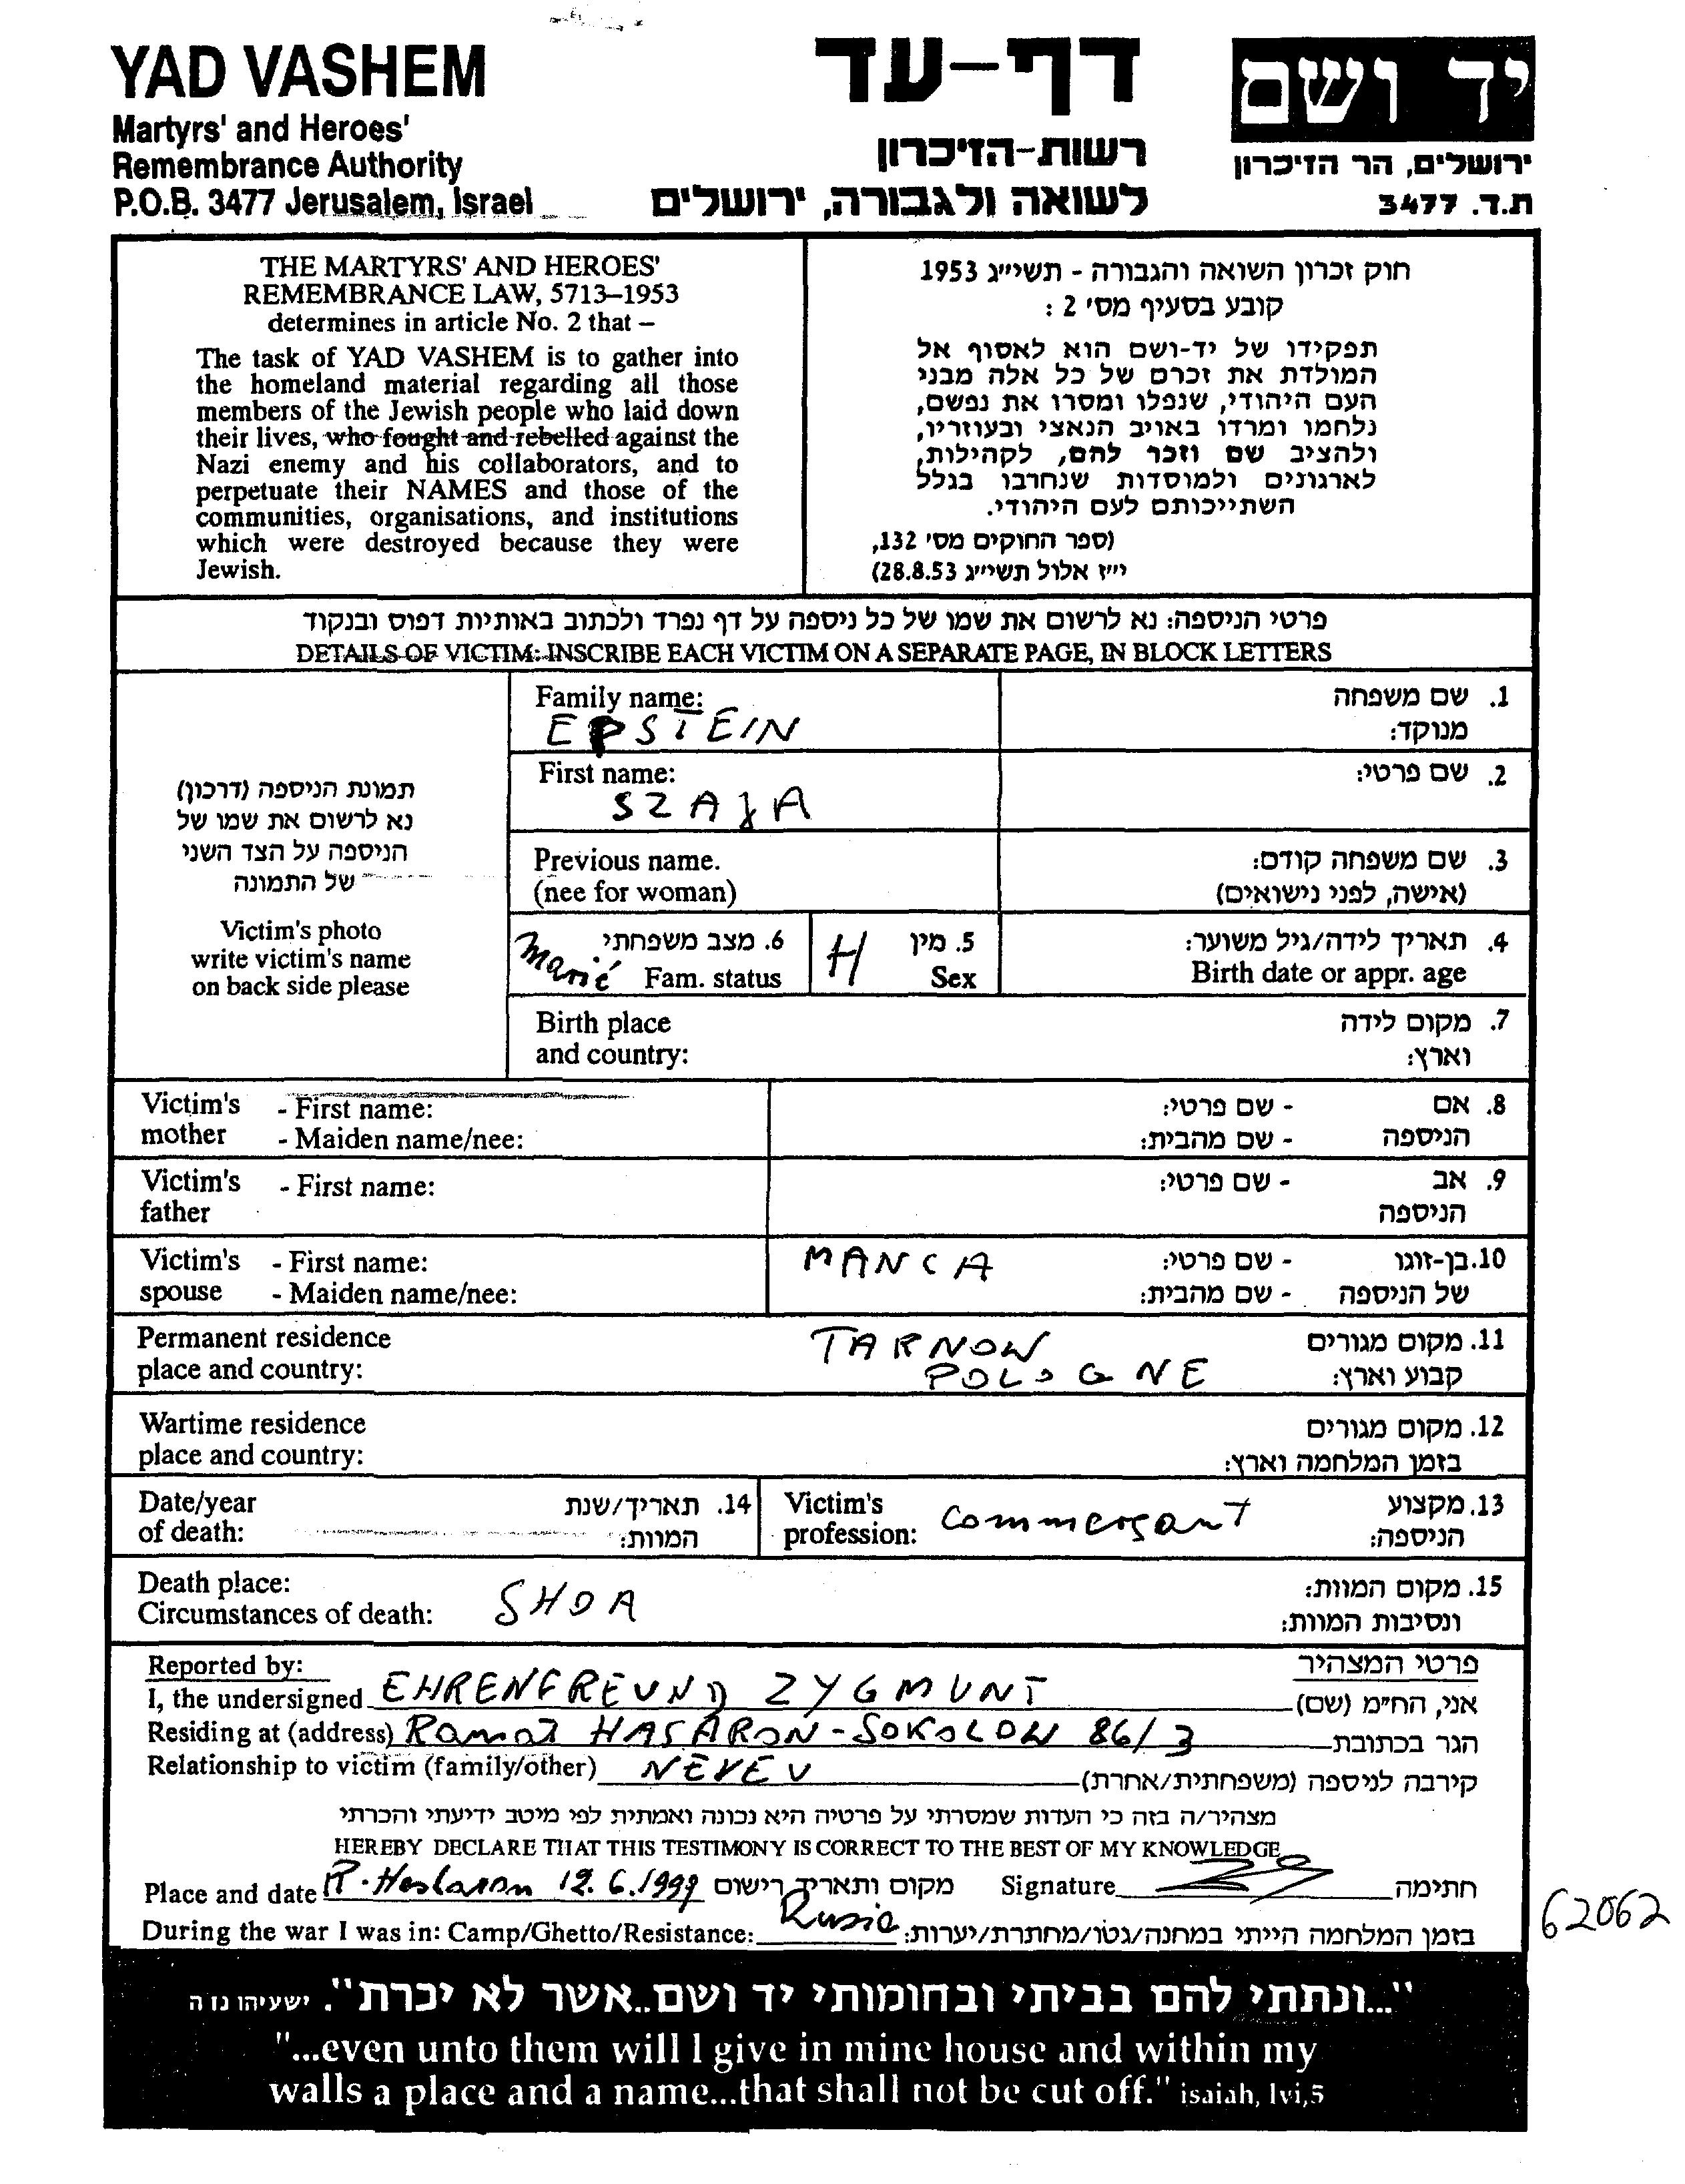 YAD VASHEM
Martyrs' and Heroes'
Remembrance Authority
P.O.B. 3477 Jerusalem, Israel
דף-עד
רשות-הזיכרון
לשואה ולגבורה, ירושלים
יד ושם
ירושלים, הר הזיכרון
ת.ד. 3477
THE MARTYRS' AND HEROES'
REMEMBRANCE LAW, 5713–1953
determines in article No. 2 that –
The task of YAD VASHEM is to gather into
the homeland material regarding all those
members of the Jewish people who laid down
their lives, who fought and rebelled against the
Nazi enemy and his collaborators, and to
perpetuate their NAMES and those of the
communities, organisations, and institutions
which were destroyed because they were
Jewish.
חוק זכרון השואה והגבורה - תשי״ג 1953
קובע בסעיף מס' 2 :
תפקידו של יד-ושם הוא לאסוף אל
המולדת את זכרם של כל אלה מבני
העם היהודי, שנפלו ומסרו את נפשם,
נלחמו ומרדו באויב הנאצי ובעוזריו,
ולהציב שם וזכר להם, לקהילות,
לארגונים ולמוסדות שנחרבו בגלל
השתייכותם לעם היהודי.
(ספר החוקים מס' 132,
י״ז אלול תשי״ג 28.8.53)
פרטי הניספה: נא לרשום את שמו של כל ניספה על דף נפרד ולכתוב באותיות דפוס ובנקוד
DETAILS OF VICTIM: INSCRIBE EACH VICTIM ON A SEPARATE PAGE, IN BLOCK LETTERS
תמונת הניספה (דרכון)
נא לרשום את שמו של
הניספה על הצד השני
של התמונה
Victim's photo
write victim's name
on back side please
Family name: 1. שם משפחה
EPSTEIN מנוקד:
First name: 2. שם פרטי:
SZAJA
Previous name. 3. שם משפחה קודם:
(nee for woman) (אישה, לפני נישואים)
Marié 6. מצב משפחתי H 5. מין 4. תאריך לידה/גיל משוער:
Fam. status Sex Birth date or appr. age
Birth place 7. מקום לידה
and country: וארץ:
Victim's - First name: - שם פרטי: 8. אם
mother - Maiden name/nee: - שם מהבית: הניספה
Victim's - First name: - שם פרטי: 9. אב
father הניספה
Victim's - First name: MANCA - שם פרטי: 10.בן-זוגו
spouse - Maiden name/nee: - שם מהבית: של הניספה
Permanent residence TARNOW 11. מקום מגורים
place and country: POLOGNE קבוע וארץ:
Wartime residence 12. מקום מגורים
place and country: בזמן המלחמה וארץ:
Date/year 14. תאריך/שנת Victim's commerçant 13.מקצוע
of death: המוות: profession: הניספה:
Death place: SHOA 15. מקום המוות:
Circumstances of death: ונסיבות המוות:
Reported by: פרטי המצהיר
I, the undersigned EHRENFREUND ZYGMUNT אני, הח״מ (שם)
Residing at (address) Ramat HASARON - SOKOLOW 86/3 הגר בכתובת
Relationship to victim (family/other) NEVEU קירבה לניספה (משפחתית/אחרת)
מצהיר/ה בזה כי העדות שמסרתי על פרטיה היא נכונה ואמתית לפי מיטב ידיעתי והכרתי
HEREBY DECLARE THAT THIS TESTIMONY IS CORRECT TO THE BEST OF MY KNOWLEDGE
Place and date R. Hasharon 12.6.1999 מקום ותאריך רישום Signature חתימה
During the war I was in: Camp/Ghetto/Resistance: Rusie בזמן המלחמה הייתי במחנה/גטו/מחתרת/יערות:
62062
"...ונתתי להם בביתי ובחומותי יד ושם..אשר לא יכרת". ישעיהו נו ה
"...even unto them will I give in mine house and within my
walls a place and a name...that shall not be cut off." isaiah, lvi,5